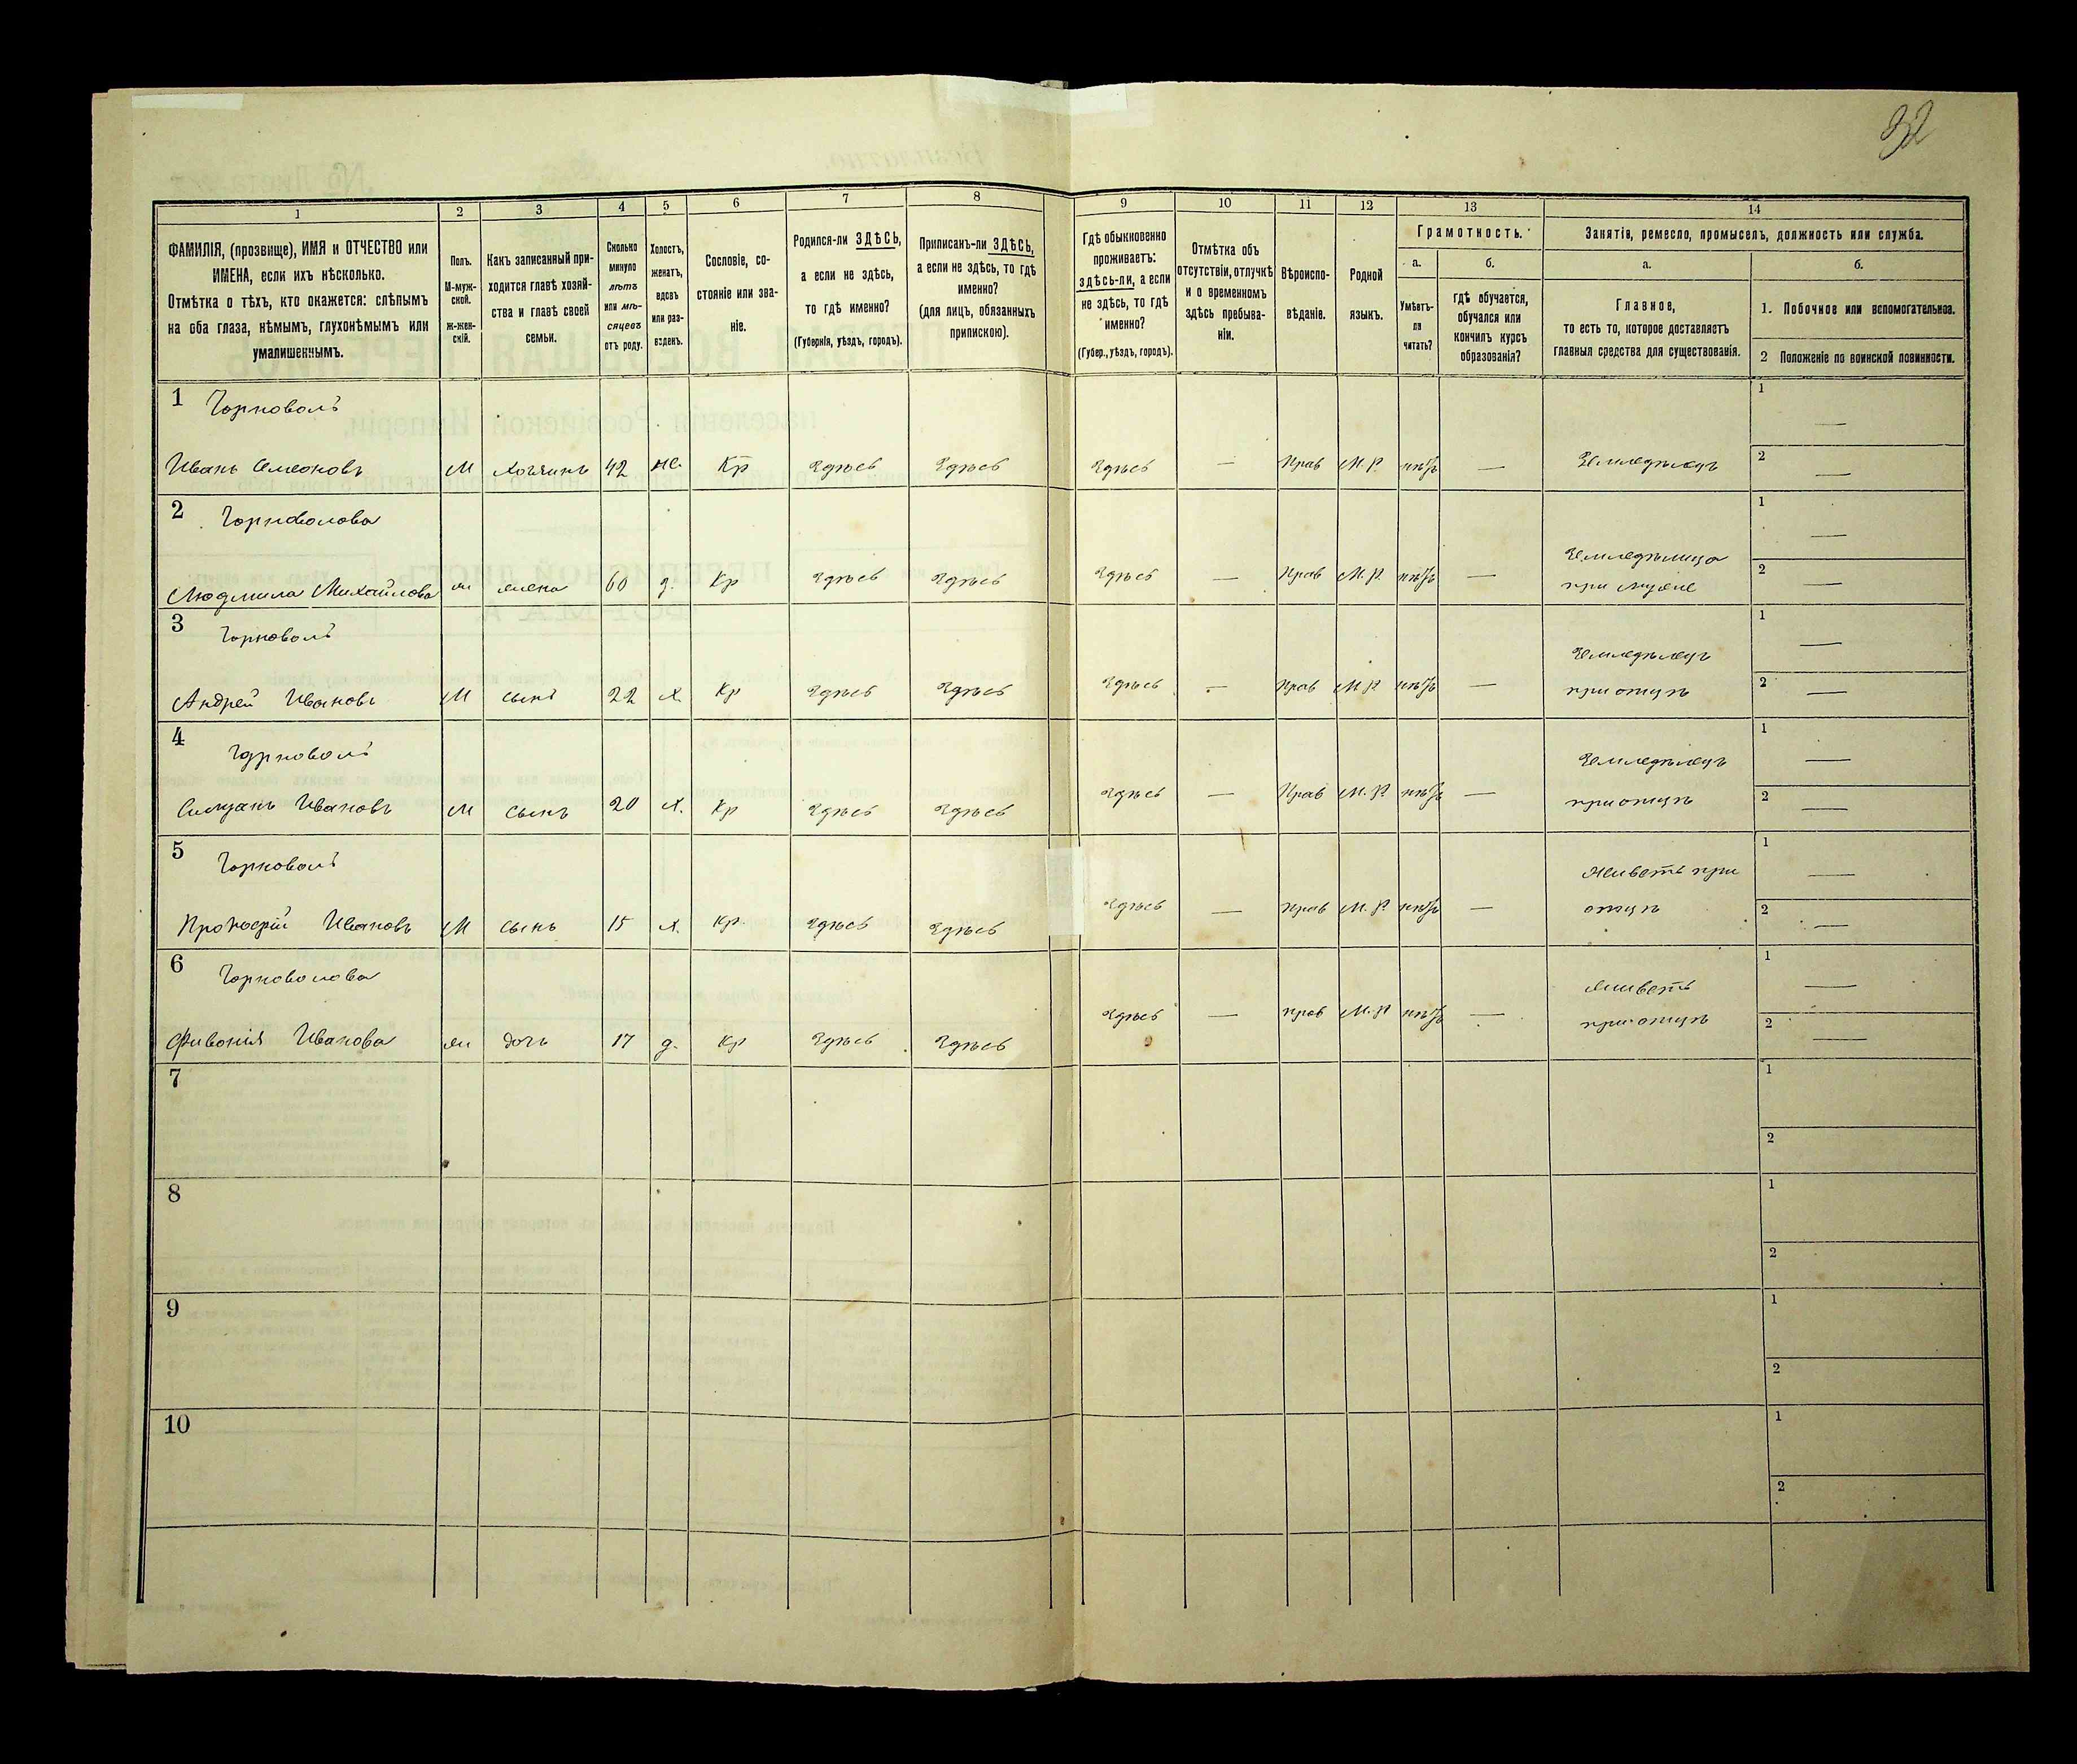 32
1 2 3 4 5 6 7 8 9 10 11 12 13 14
ФАМИЛІЯ, (прозвище), ИМЯ и ОТЧЕСТВО или
ИМЕНА, если ихъ нѣсколько.
Отмѣтка о тѣхъ, кто окажется: слѣпымъ
на оба глаза, нѣмымъ, глухонѣмымъ или
умалишеннымъ.
Полъ.
М-муж-
ской.
ж-жен-
скій.
Какъ записанный при-
ходится главѣ хозяй-
ства и главѣ своей
семьи.
Сколько
минуло
лѣтъ
или мѣ-
сяцевъ
отъ роду.
Холостъ,
женатъ,
вдовъ
или раз-
веденъ.
Сословіе, со-
стояніе или зва-
ніе.
Родился-ли ЗДѢСЬ,
а если не здѣсь,
то гдѣ именно?
(Губернія, уѣздъ, городъ).
Приписанъ-ли ЗДѢСЬ,
а если не здѣсь, то гдѣ
именно?
(для лицъ, обязанныхъ
припискою).
Гдѣ обыкновенно
проживаетъ:
здѣсь-ли, а если
не здѣсь, то гдѣ
именно?
(Губер., уѣздъ, городъ).
Отмѣтка объ
отсутствіи, отлучкѣ
и о временномъ
здѣсь пребыва-
ніи.
Вѣроиспо-
вѣданіе.
Родной
языкъ.
Грамотность.
а.
Умѣетъ-
ли
читать?
б.
гдѣ обучается,
обучался или
кончилъ курсъ
образованія?
Занятія, ремесло, промыселъ, должность или служба.
а.
Главное,
то есть то, которое доставляетъ
главныя средства для существованія.
б.
1. Побочное или вспомогательное.
2 Положеніе по воинской повинности.
1 Чорноволъ
1 —
Иванъ Семеоновъ М хозяинъ 42 же. Кр Здѣсь Здѣсь Здѣсь — Прав М.Р. нѣтъ — Земледѣлецъ 2 —
2 Чорноволова
1 —
Земледѣлица
Людмила Михайлова ж жена 60 з. Кр Здѣсь Здѣсь Здѣсь — Прав М.Р. нѣтъ — при мужѣ 2 —
3 Чорноволъ
1 —
Земледѣлецъ
Андрей Ивановъ М сынъ 22 х. Кр Здѣсь Здѣсь Здѣсь — Прав М.Р нѣтъ — при отцѣ 2 —
4 Чорноволъ
1 —
Земледѣлецъ
Ивановъ М сынъ 20 х. Кр Здѣсь Здѣсь Здѣсь — Прав М.Р. нѣтъ — при отцѣ 2 —
5 Чорноволъ
1 —
Живетъ при
Ивановъ М сынъ 15 х. Кр. Здѣсь Здѣсь Здѣсь — Прав М.Р. нѣтъ — отцѣ 2 —
6 Чорноволова
1 —
Живетъ
Фивонія Иванова ж дочь 17 д. Кр Здѣсь Здѣсь Здѣсь — прав М.Р нѣтъ — при отцѣ 2 —
7
1
2
8
1
2
9
1
2
10
1
2